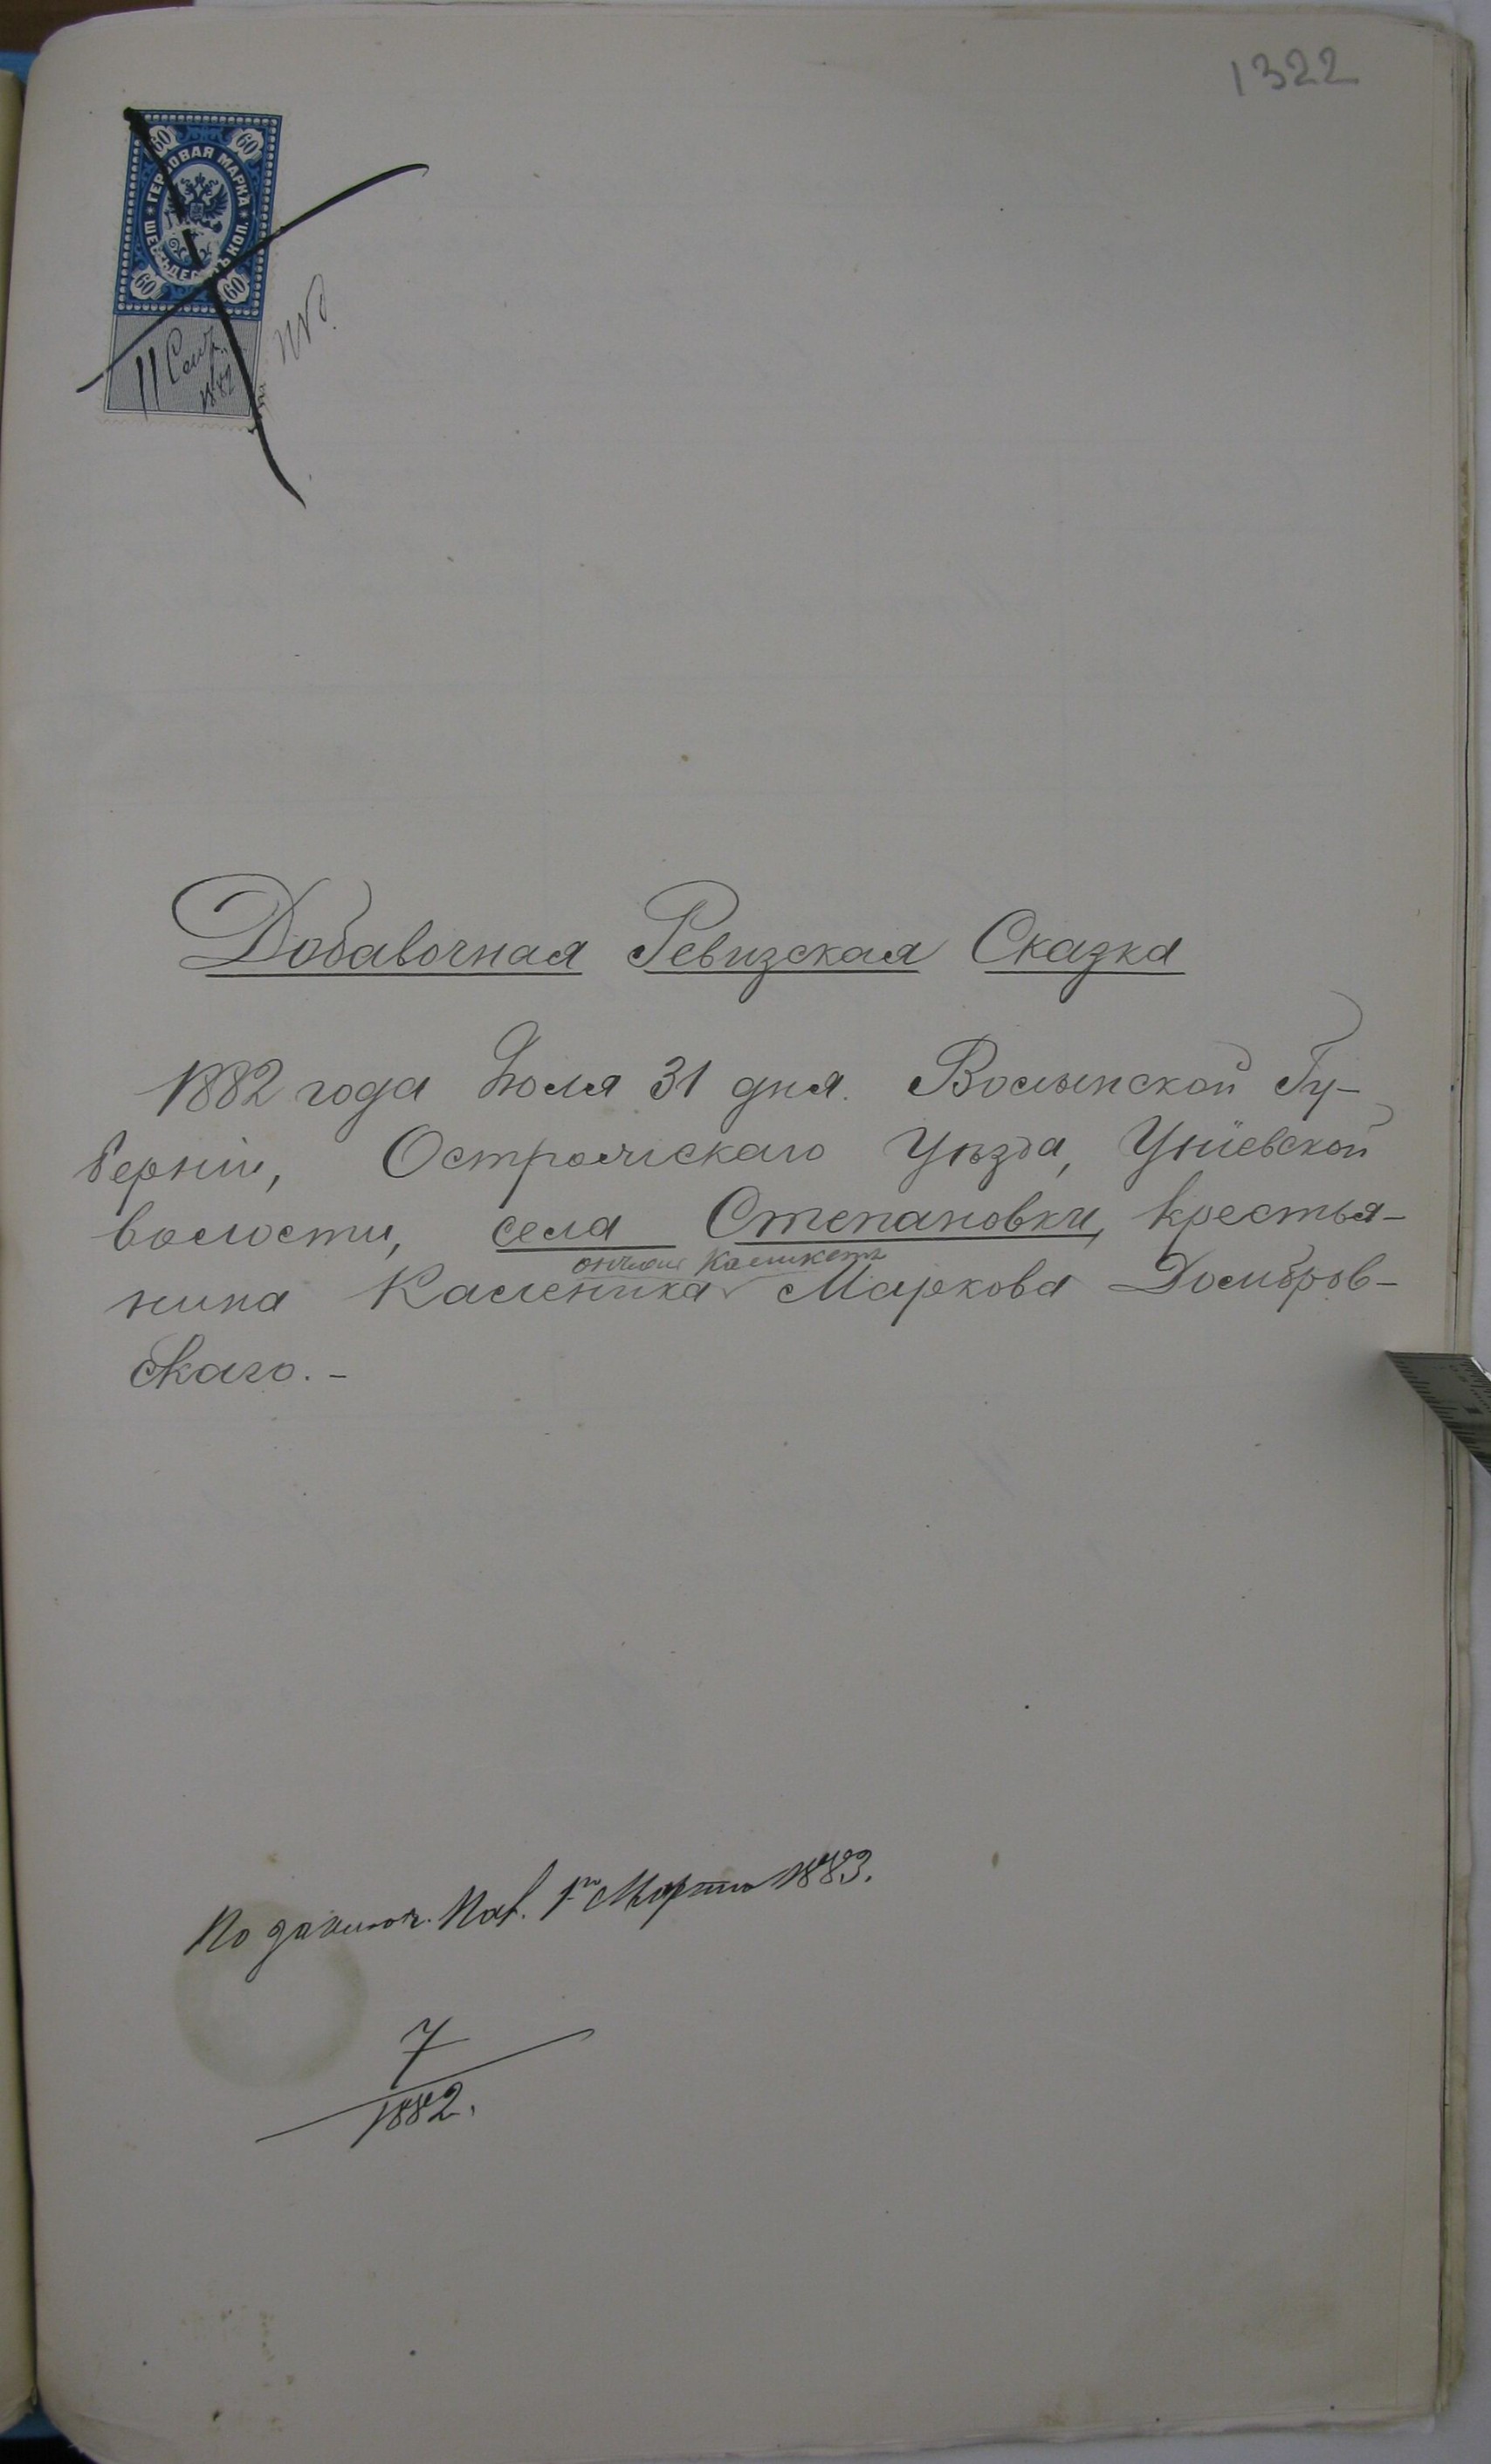 1322
60 60
ГЕРБОВАЯ МАРКА
ШЕСТЬДЕСЯТЪ КОП.
60 60
11 Сент.
1882
Добавочная Ревизская Сказка
1882 года Іюля 31 дня. Волынской Гу-
берніи, Острожскаго Уѣзда, Уніевской
волости, села Степановки, крестья-
нина Каленика Маркова Домбров-
скаго. -
Марта 1883.
7
1882.